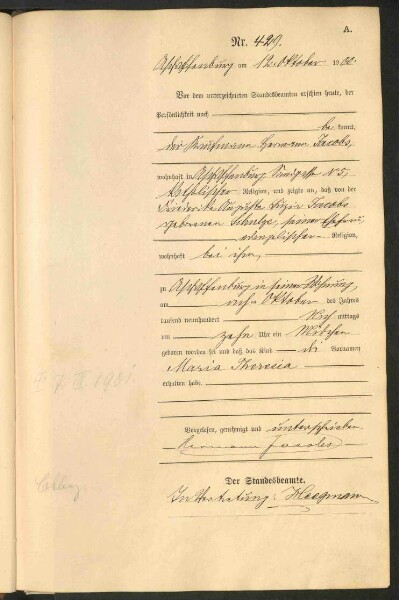 A.
Nr. 429.
Aschaffenburg am 12. Oktober 19
Vor dem unterzeichneten Standesbeamten erschien heute, der
Persönlichkeit nach
be kannt,
der Kaufmann Hermann Jacobs,
wohnhaft in Aschaffenburg
Religion, und zeigte an, daß von der
Friederike Auguste Luzie Jacobs
geborenen Schulze, seiner Ehefrau
evangelischer Religion,
wohnhaft bei ihm,
zu Aschaffenburg in seiner Wohnung,
am Oktober des Jahres
tausend neunhundert mittags
um zehn Uhr ein Mädchen
geboren worden sei und daß das Kind die Vornamen
Maria Theresia
erhalten habe.
Vorgelesen, genehmigt und unterschrieben
Hermann Jacobs
Der Standesbeamte.
In Vertretung: